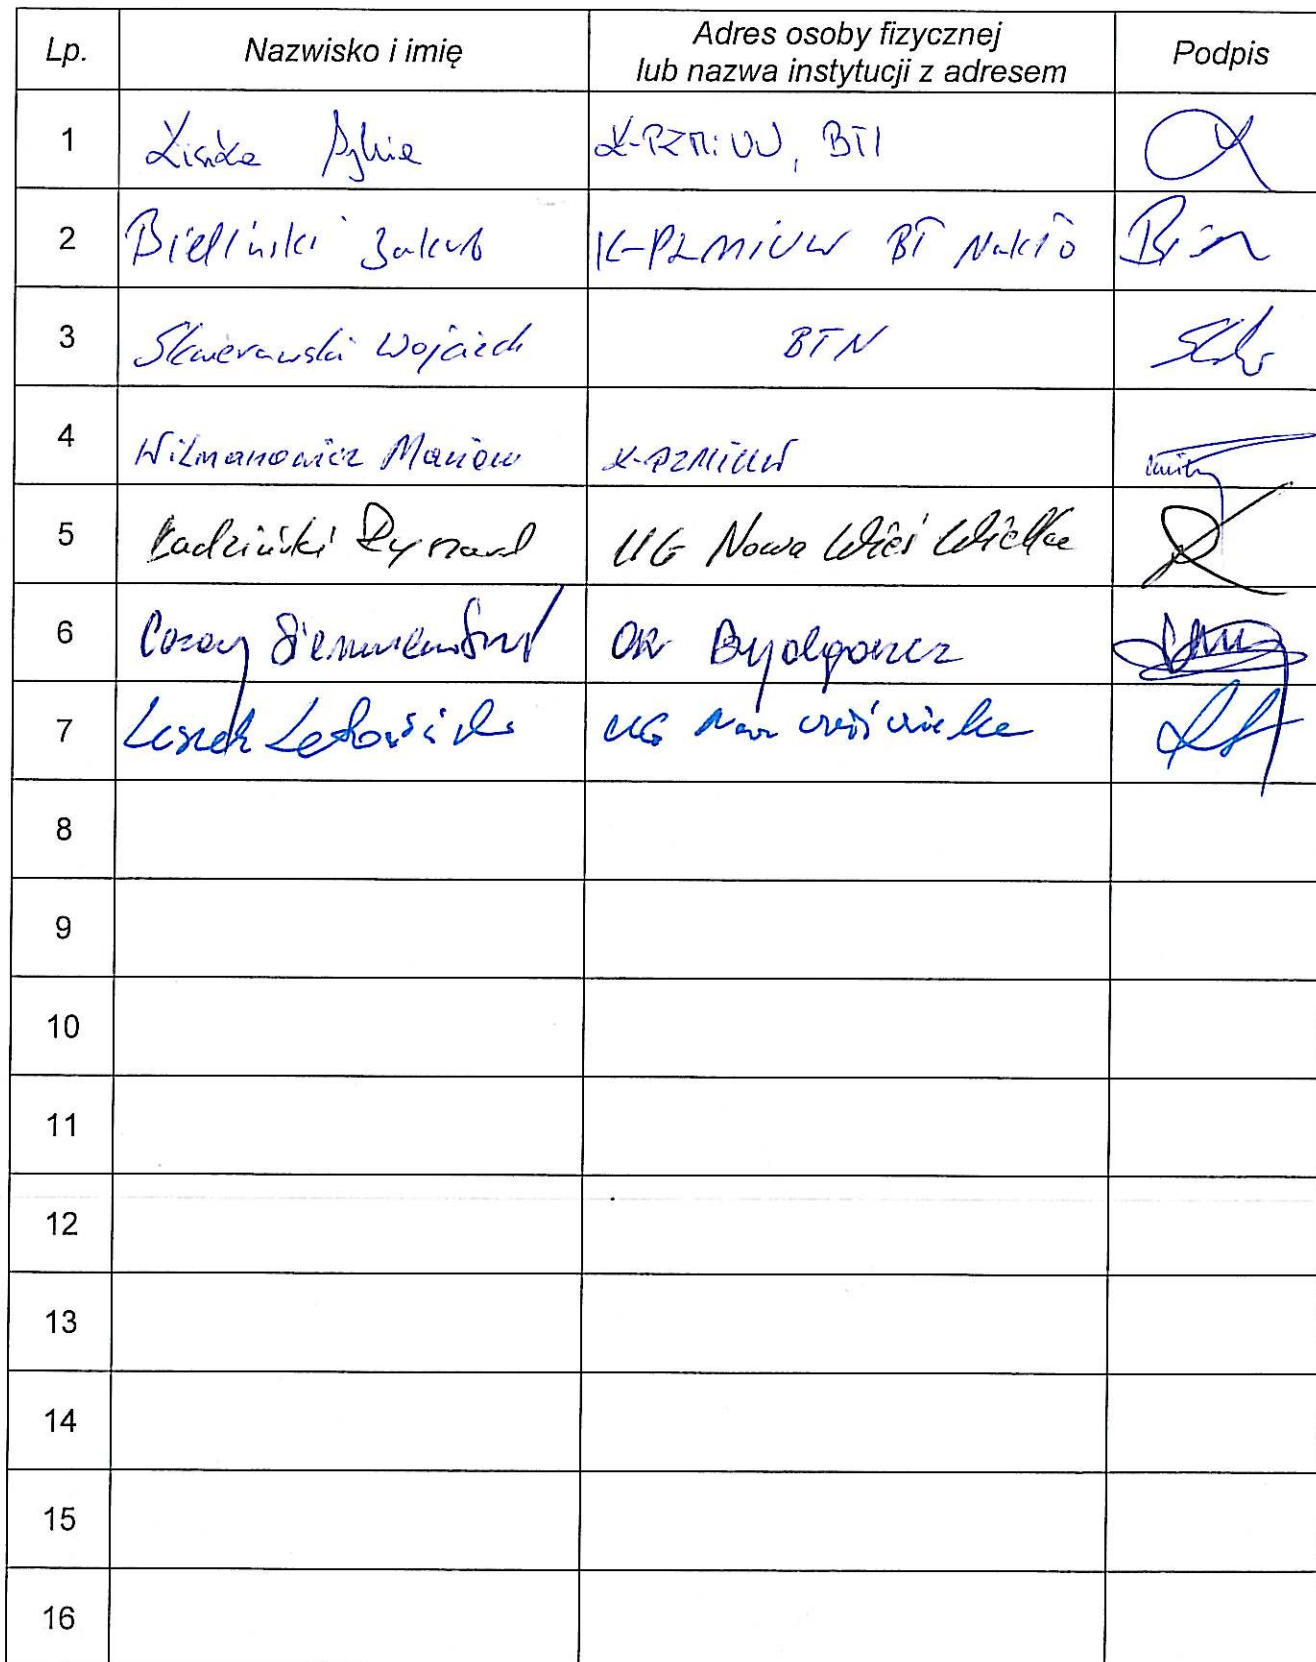 Lp. Nazwisko i imię Adres osoby fizycznej lub nazwa instytucji z adresem Podpis
1 K-PZMiUW, BTI
2 Bieliński Jakub K-PZMiUW BT Nakło
3 Skwerawski Wojciech BTN
4 Wilmanowicz Marian K-PZMiUW
5 Radziński Ryszard UG Nowa Wieś Wielka
6 Cezary Bydgoszcz
7 Leszek UG Nowa Wieś Wielka
8
9
10
11
12
13
14
15
16